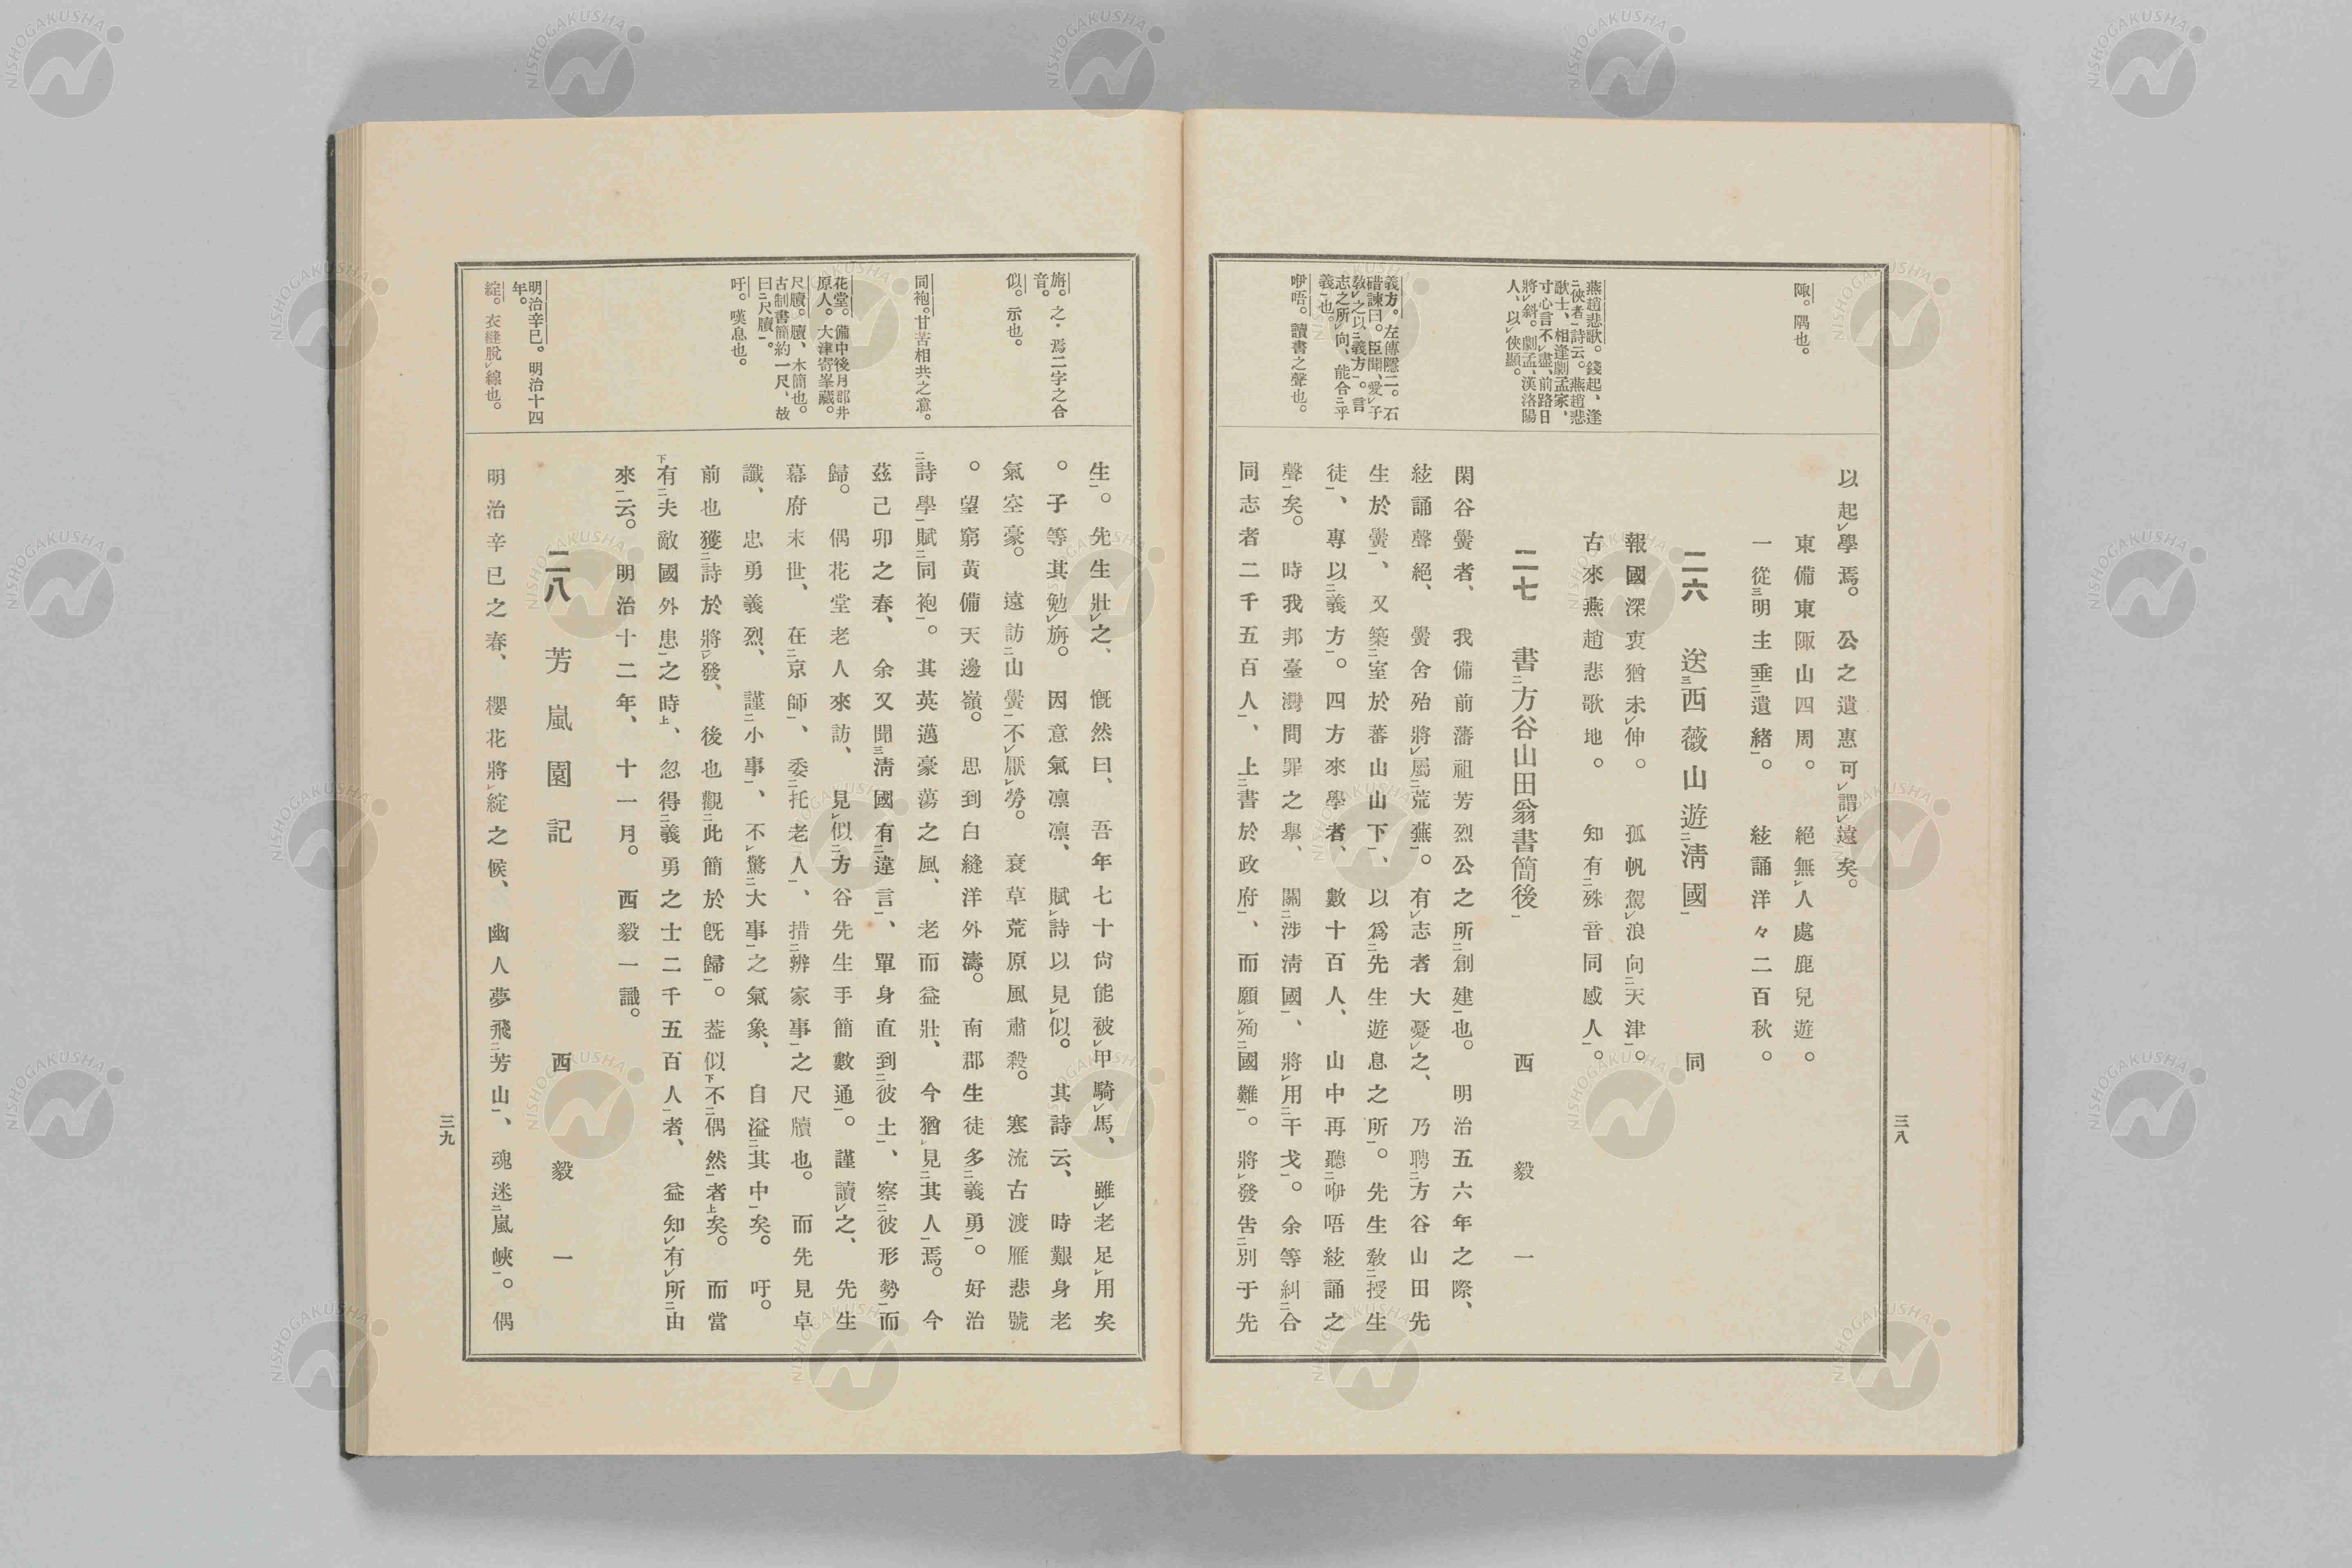 陬。隅也。
燕趙悲歌。錢起、逢
二俠者一詩云。燕趙悲
歌士、相逢劇孟家、
寸心言不レ盡、前路日
將レ斜。劇孟、漢洛陽
人、以レ俠顯。
義方。左傳隱二。石
碏諫曰。臣聞、愛レ子
敎レ之以二義方一。言
志之所レ向、能合二乎
義一也。
咿唔。讀書之聲也。
以起レ學焉。公之遺惠可レ謂レ遠矣。
東備東陬山四周。絕無レ人處鹿兒遊。
一從三明主垂二遺緖一。絃誦洋々二百秋。
二六 送三西薇山遊二淸國一 同
報國深衷猶未レ伸。孤帆駕レ浪向二天津一。
古來燕趙悲歌地。知有二殊音同感人一。
二七 書二方谷山田翁書簡後一 西毅一
閑谷黌者、我備前藩祖芳烈公之所二創建一也。明治五六年之際、
絃誦聲絕、黌舍殆將レ屬二荒蕪一。有レ志者大憂レ之、乃聘二方谷山田先
生於黌一、又築二室於蕃山山下一、以爲二先生遊息之所一。先生敎二授生
徒一、專以二義方一。四方來學者、數十百人、山中再聽二咿唔絃誦之
聲一矣。時我邦臺灣問罪之擧、關二涉淸國一、將レ用二干戈一。余等糾二合
同志者二千五百人一、上二書於政府一、而願レ殉二國難一。將レ發吿二別于先
三八
旃。之・焉二字之合
音。
似。示也。
同袍。甘苦相共之意。
花堂。備中後月郡井
原人。大津寄峯藏。
尺牘。牘、木簡也。
古制書簡約一尺、故
曰二尺牘一。
吁。嘆息也。
明治辛巳。明治十四
年。
綻。衣縫脫レ線也。
生一。先生壯レ之、慨然曰、吾年七十尙能被レ甲騎レ馬、雖レ老足レ用矣
。子等其勉レ旃。因意氣凛凛、賦レ詩以見レ似。其詩云、時艱身老
氣空豪。遠訪二山黌一不レ厭レ勞。衰草荒原風肅殺。寒流古渡雁悲號
。望窮黃備天邊嶺。思到白縫洋外濤。南郡生徒多二義勇一。好治
二詩學一賦二同袍一。其英邁豪蕩之風、老而益壯、今猶レ見二其人一焉。今
玆己卯之春、余又聞三淸國有二違言一、單身直到二彼土一、察二彼形勢一而
歸。偶花堂老人來訪、見レ似二方谷先生手簡數通一。謹讀レ之、先生
幕府末世、在二京師一、委二托老人一、措二辨家事一之尺牘也。而先見卓
識、忠勇義烈、謹二小事一、不レ驚二大事一之氣象、自溢二其中一矣。吁。
前也獲二詩於將一レ發、後也觀二此簡於旣歸一。葢似下不二偶然一者上矣。而當
下有二夫敵國外患一之時上、忽得二義勇之士二千五百人一者、益知レ有レ所二由
來一云。明治十二年、十一月。西毅一識。
二八 芳嵐園記 西毅一
明治辛巳之春、櫻花將レ綻之候、幽人夢飛二芳山一、魂迷二嵐峽一。偶
三九
NISHOGAKUSHA